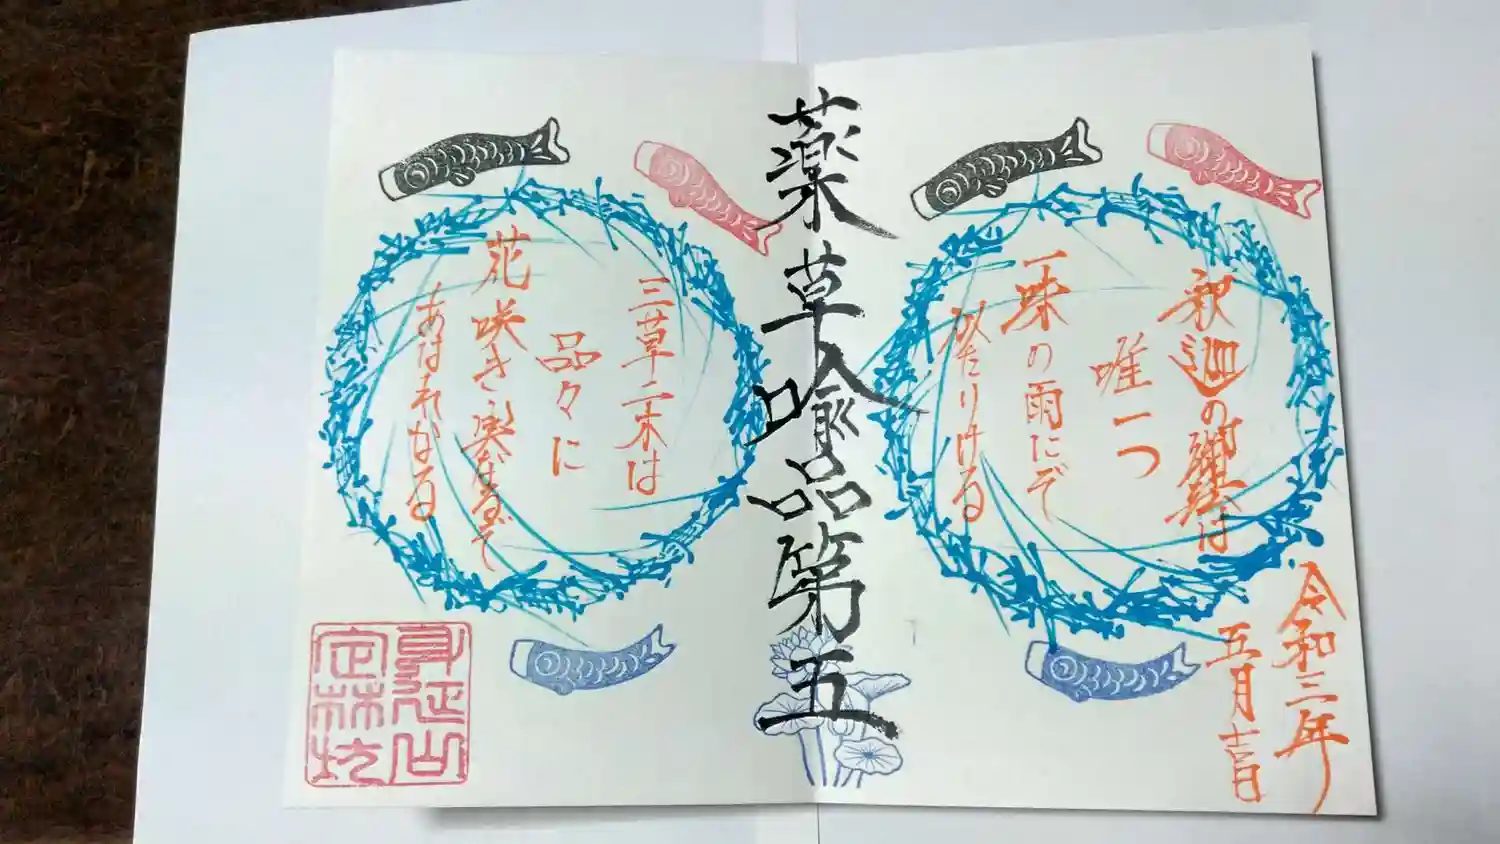 釈迦の御法は
唯一つ
一味の雨にぞ
似たりける
令和三年
五月吉日
薬草喩品第五
三草二木は
品々に
花咲き実なるぞ
あはれなる
身延山
定林坊